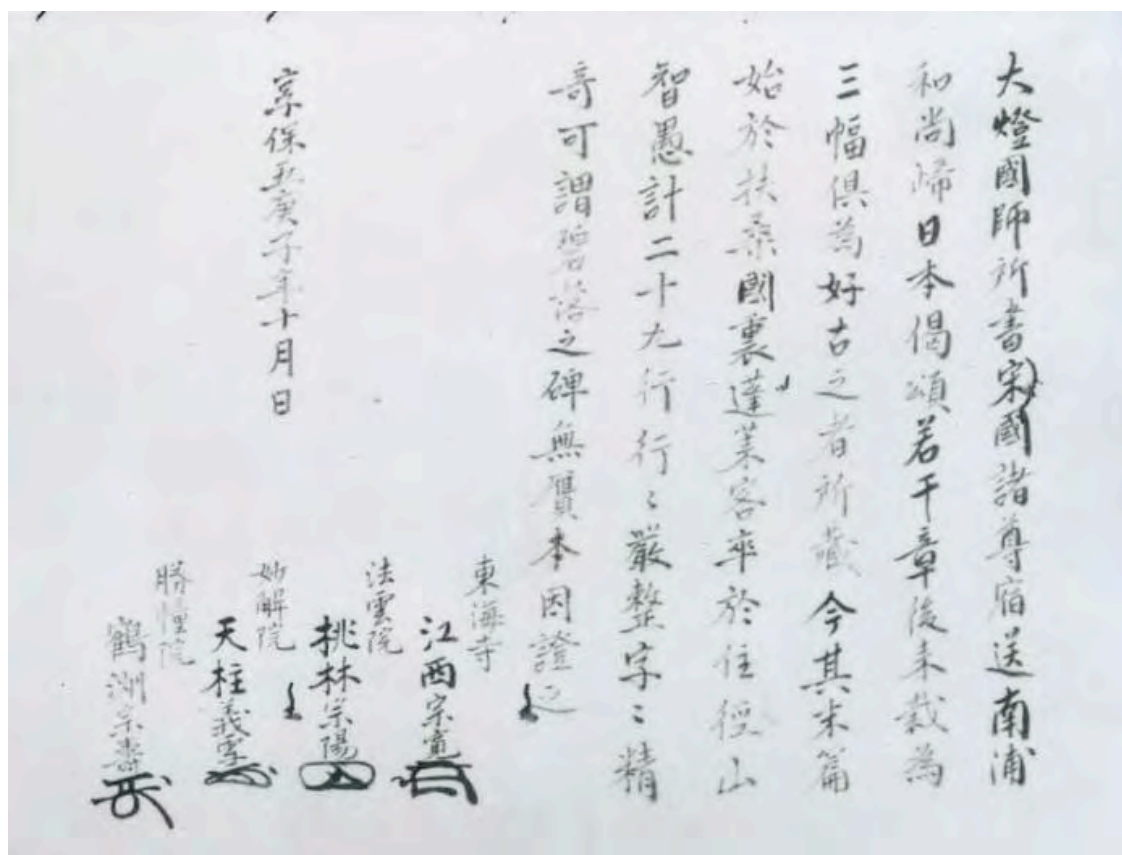 大燈國師所書宋國諸尊宿送南浦
和尚歸日本偈頌若干章後来裁為
三幅俱為好古之者所藏今其末篇
始於扶桑國裏蓬莱客卒於住徑山
智愚計二十九行行〻嚴整字〻精
奇可謂碧落之碑無贋本因證之
享保五庚子年十月日
東海寺
江西宗寛
法雲院
桃林宗陽
妙解院
天柱義雪
勝幢院
鶴洲宗壽